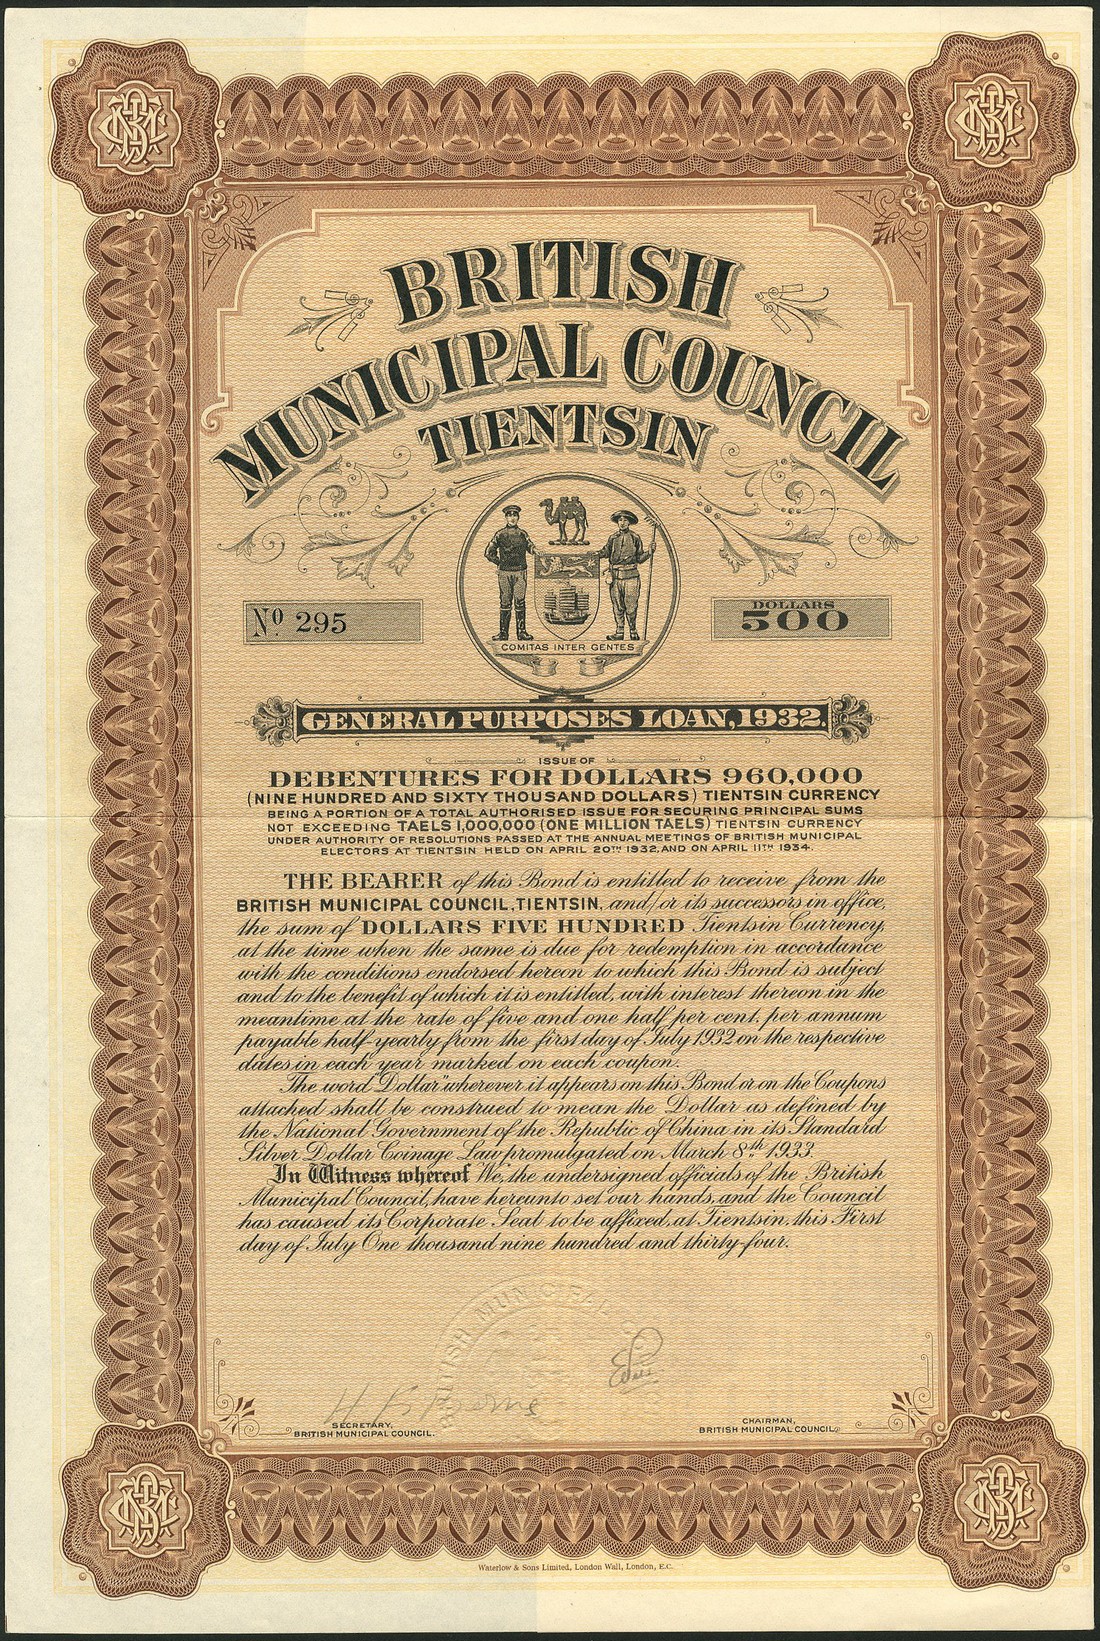 BRITISH
MUNICIPAL COUNCIL
TIENTSIN
COMITAS INTER GENTES
Nº 295
DOLLARS
500
GENERAL PURPOSES LOAN, 1932.
ISSUE OF
DEBENTURES FOR DOLLARS 960,000
(NINE HUNDRED AND SIXTY THOUSAND DOLLARS) TIENTSIN CURRENCY
BEING A PORTION OF A TOTAL AUTHORISED ISSUE FOR SECURING PRINCIPAL SUMS
NOT EXCEEDING TAELS 1,000,000 (ONE MILLION TAELS) TIENTSIN CURRENCY
UNDER AUTHORITY OF RESOLUTIONS PASSED AT THE ANNUAL MEETINGS OF BRITISH MUNICIPAL
ELECTORS AT TIENTSIN HELD ON APRIL 20TH 1932, AND ON APRIL 11TH 1934.
THE BEARER of this Bond is entitled to receive from the
BRITISH MUNICIPAL COUNCIL, TIENTSIN, and/or its successors in office,
the sum of DOLLARS FIVE HUNDRED Tientsin Currency,
at the time when the same is due for redemption in accordance
with the conditions endorsed hereon to which this Bond is subject
and to the benefit of which it is entitled, with interest thereon in the
meantime at the rate of five and one half per cent. per annum
payable half-yearly from the first day of July 1932 on the respective
dates in each year marked on each coupon.
The word "Dollar" wherever it appears on this Bond or on the Coupons
attached shall be construed to mean the Dollar as defined by
the National Government of the Republic of China in its Standard
Silver Dollar Coinage Law promulgated on March 8th 1933.
In Witness whereof We, the undersigned officials of the British
Municipal Council, have hereunto set our hands, and the Council
has caused its Corporate Seal to be affixed, at Tientsin, this First
day of July One thousand nine hundred and thirty-four.
BRITISH MUNICIPAL
SECRETARY,
BRITISH MUNICIPAL COUNCIL.
CHAIRMAN,
BRITISH MUNICIPAL COUNCIL.
Waterlow & Sons Limited, London Wall, London, E.C.